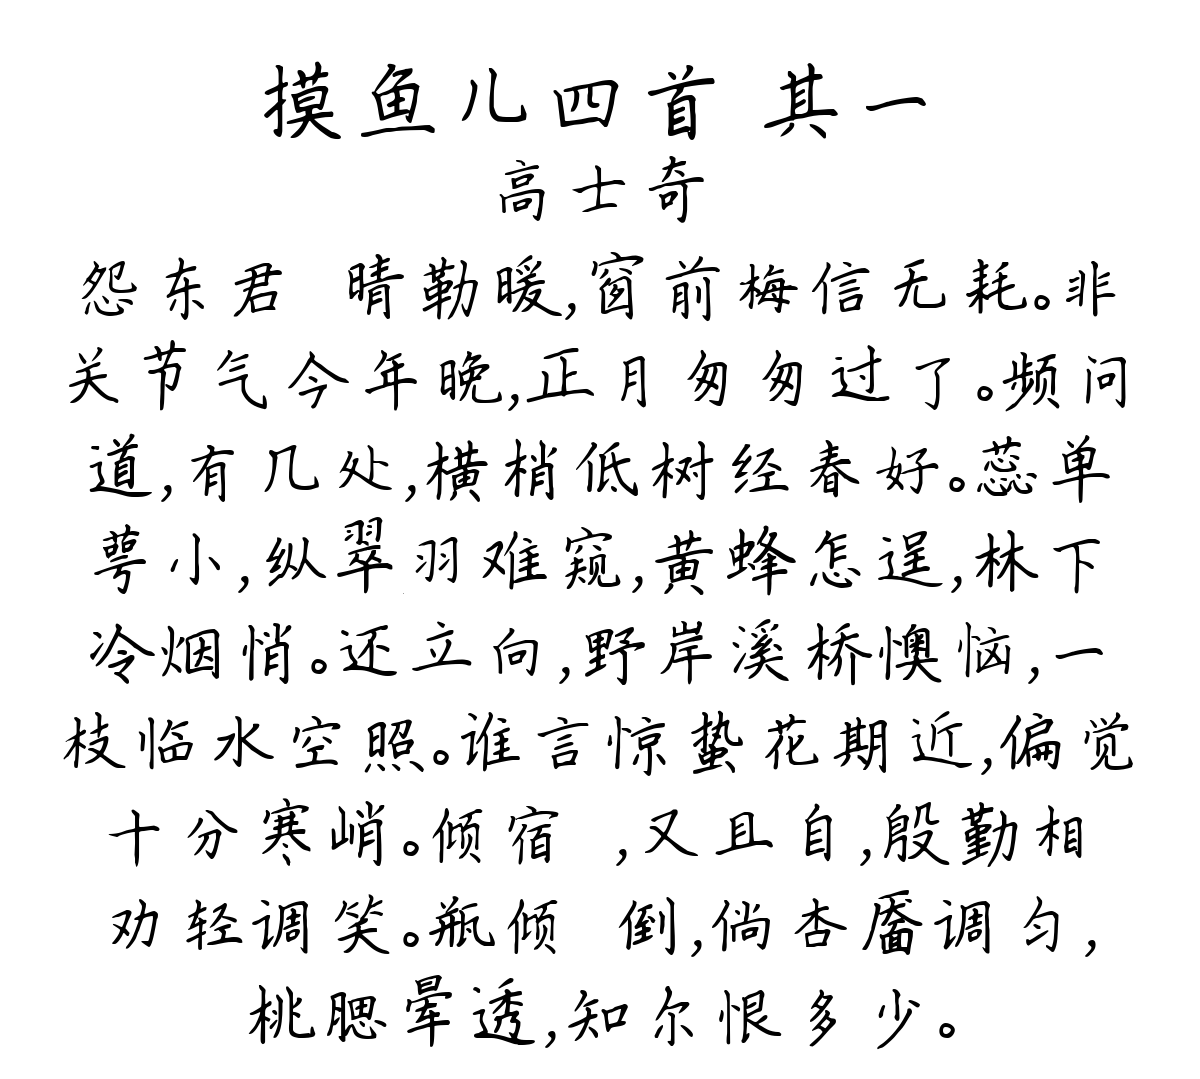 摸鱼儿四首 其一
高士奇
怨东君 晴勒暖,窗前梅信无耗。非
关节气今年晚,正月匆匆过了。频问
道,有几处,横梢低树经春好。蕊单
萼小,纵翠羽难窥,黄蜂怎逞,林下
冷烟悄。还立向,野岸溪桥懊恼,一
枝临水空照。谁言惊蛰花期近,偏觉
十分寒峭。倾宿 ,又且自,殷勤相
劝轻调笑。瓶倾 倒,倘杏靥调匀,
桃腮晕透,知尔恨多少。